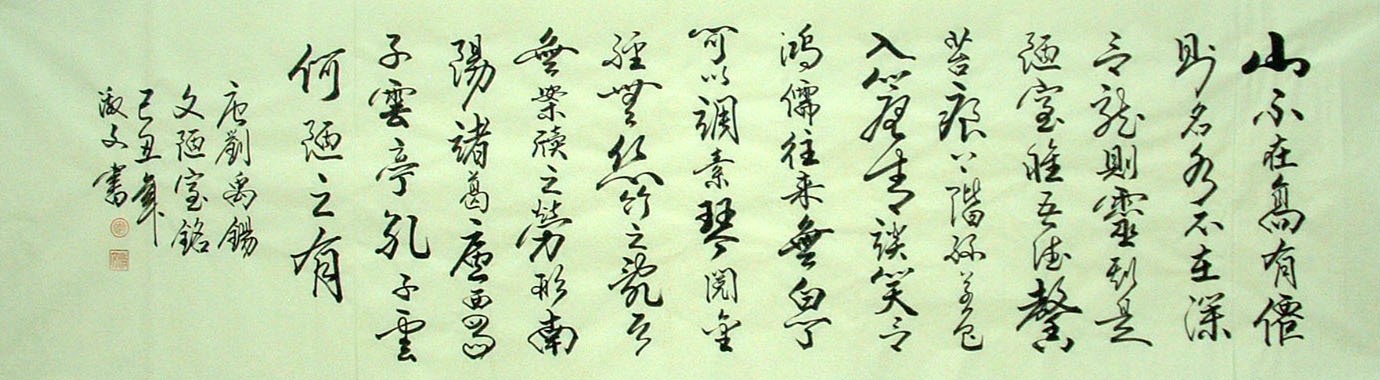 山不在高有僊
则名水不在深
有龙則靈斯是
陋室唯吾德馨
苔痕上階绿草色
入簾青談笑有
鸿儒往来無白丁
可以調素琴閱金
經無丝竹之亂耳
無案牍之勞形南
陽諸葛廬西蜀
子雲亭孔子雲
何陋之有
唐劉禹錫
文陋室銘
己丑年
淑文書